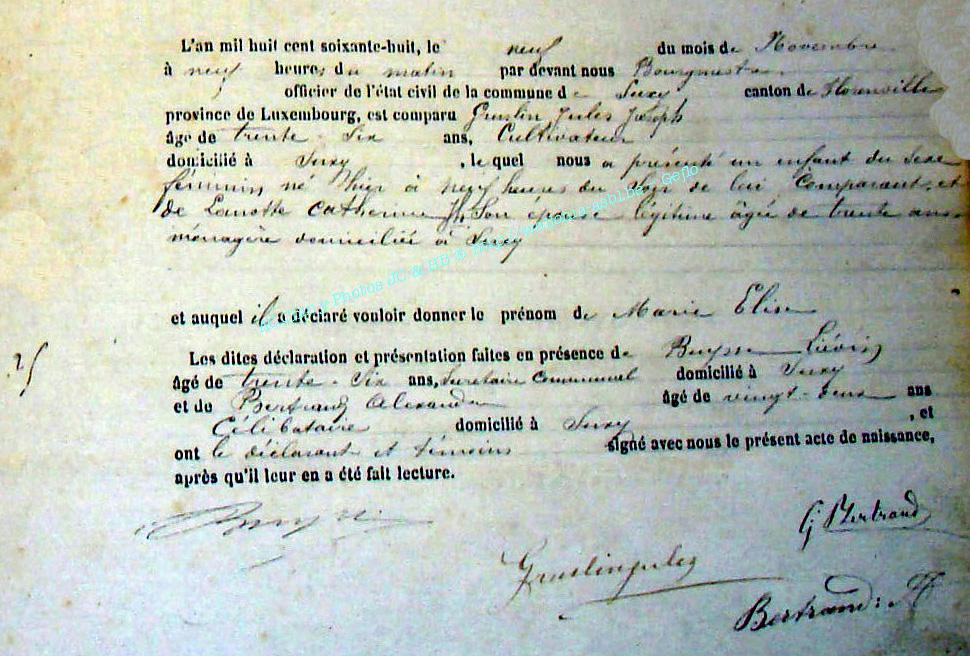 L'an mil huit cent soixante-huit, le neuf du mois de Novembre
à neuf heures du matin par devant nous Bourgmestre
officier de l'état civil de la commune de Suxy canton de Florenville
province de Luxembourg, est comparu Gruslin Jules Joseph
âgé de trente-Six ans, Cultivateur
domicilié à Suxy, lequel nous a présenté un enfant du Sexe
féminin, né hier à neuf heures du Soir de lui Comparant, et
de Lanotte Catherine Jh, Son épouse légitime âgée de trente ans
ménagère domiciliée à Suxy
et auquel il a déclaré vouloir donner le prénom de Marie Elise
25
Les dites déclaration et présentation faites en présence de Buysse Liévin
âgé de trente-Six ans, Secrétaire Communal domicilié à Suxy
et de Bertrand Alexandre âgé de vingt-deux ans
Célibataire domicilié à Suxy, et
ont le déclarant et témoins signé avec nous le présent acte de naissance,
après qu'il leur en a été fait lecture.
G Bertrand
Gruslin jules
Bertrand: A